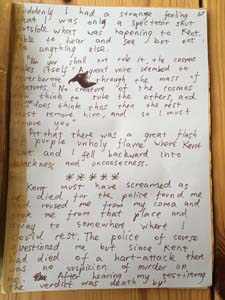 Suddenly I had a strange feeling
that I was only a spectator shut
outside what was happening to Kent.
Able to hear and see but not
anything else.
"No you shall not rule it, the cosmos
rules itself." A great voice seemed to
reverberate through the mass of
creatures. "No creature of the cosmos
think to rule the others, and
does think thus then the rest
must remove him, and so I must
remove you."
At that there was a great flash
of purple unholy flame where Kent
sat and I fell backward into
blackness and unconsciousness.
*****
Kent must have screamed as
he died for the police found me
and roused me from my coma and
took me from that place and
away to somewhere where I
could rest. The police of course
questioned me but since Kent
had died of a hart-attack there
was no suspicion of murder on
me. After hearing my testimony
the verdict was death by